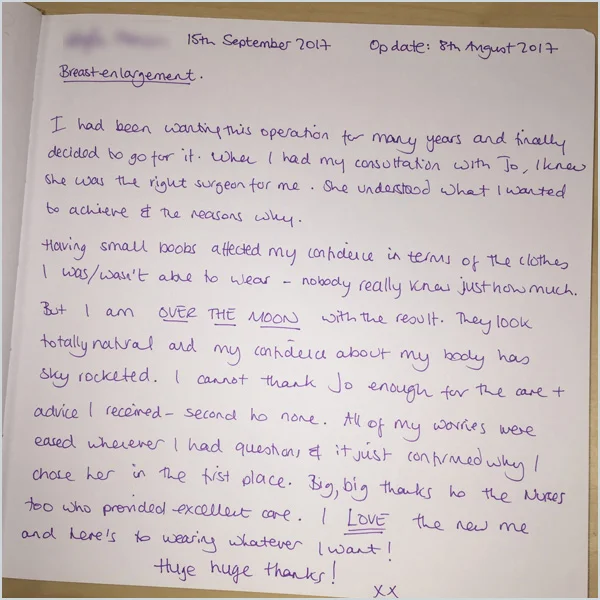 15th September 2017 Op date: 8th August 2017
Breast enlargement.
I had been wanting this operation for many years and finally
decided to go for it. When I had my consultation with Jo, I knew
she was the right surgeon for me. She understood what I wanted
to achieve & the reasons why.
Having small boobs affected my confidence in terms of the clothes
I was/wasn't able to wear - nobody really knew just how much.
But I am OVER THE MOON with the result. They look
totally natural and my confidence about my body has
sky rocketed. I cannot thank Jo enough for the care +
advice I received - second to none. All of my worries were
eased whenever I had questions & it just confirmed why I
chose her in the first place. Big, big thanks to the Nurses
too who provided excellent care. I LOVE the new me
and here's to wearing whatever I want!
Huge huge thanks!
xx